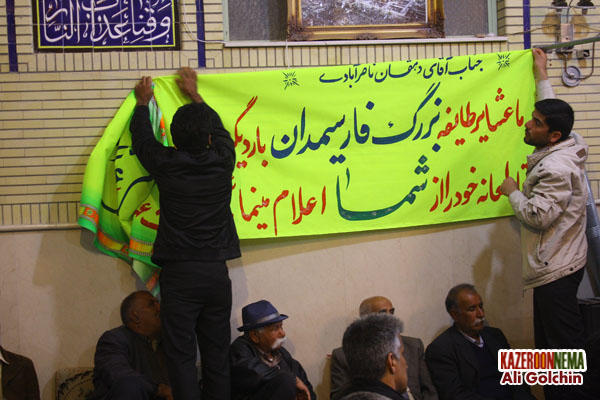 وقنا عذاب النار
جناب آقای دهقان ناصرآبادی
ما عشایر طایفه بزرگ فارسیمدان بار دیگر
خود را از شما اعلام مینما
KAZEROONNEMA
Ali Golchin